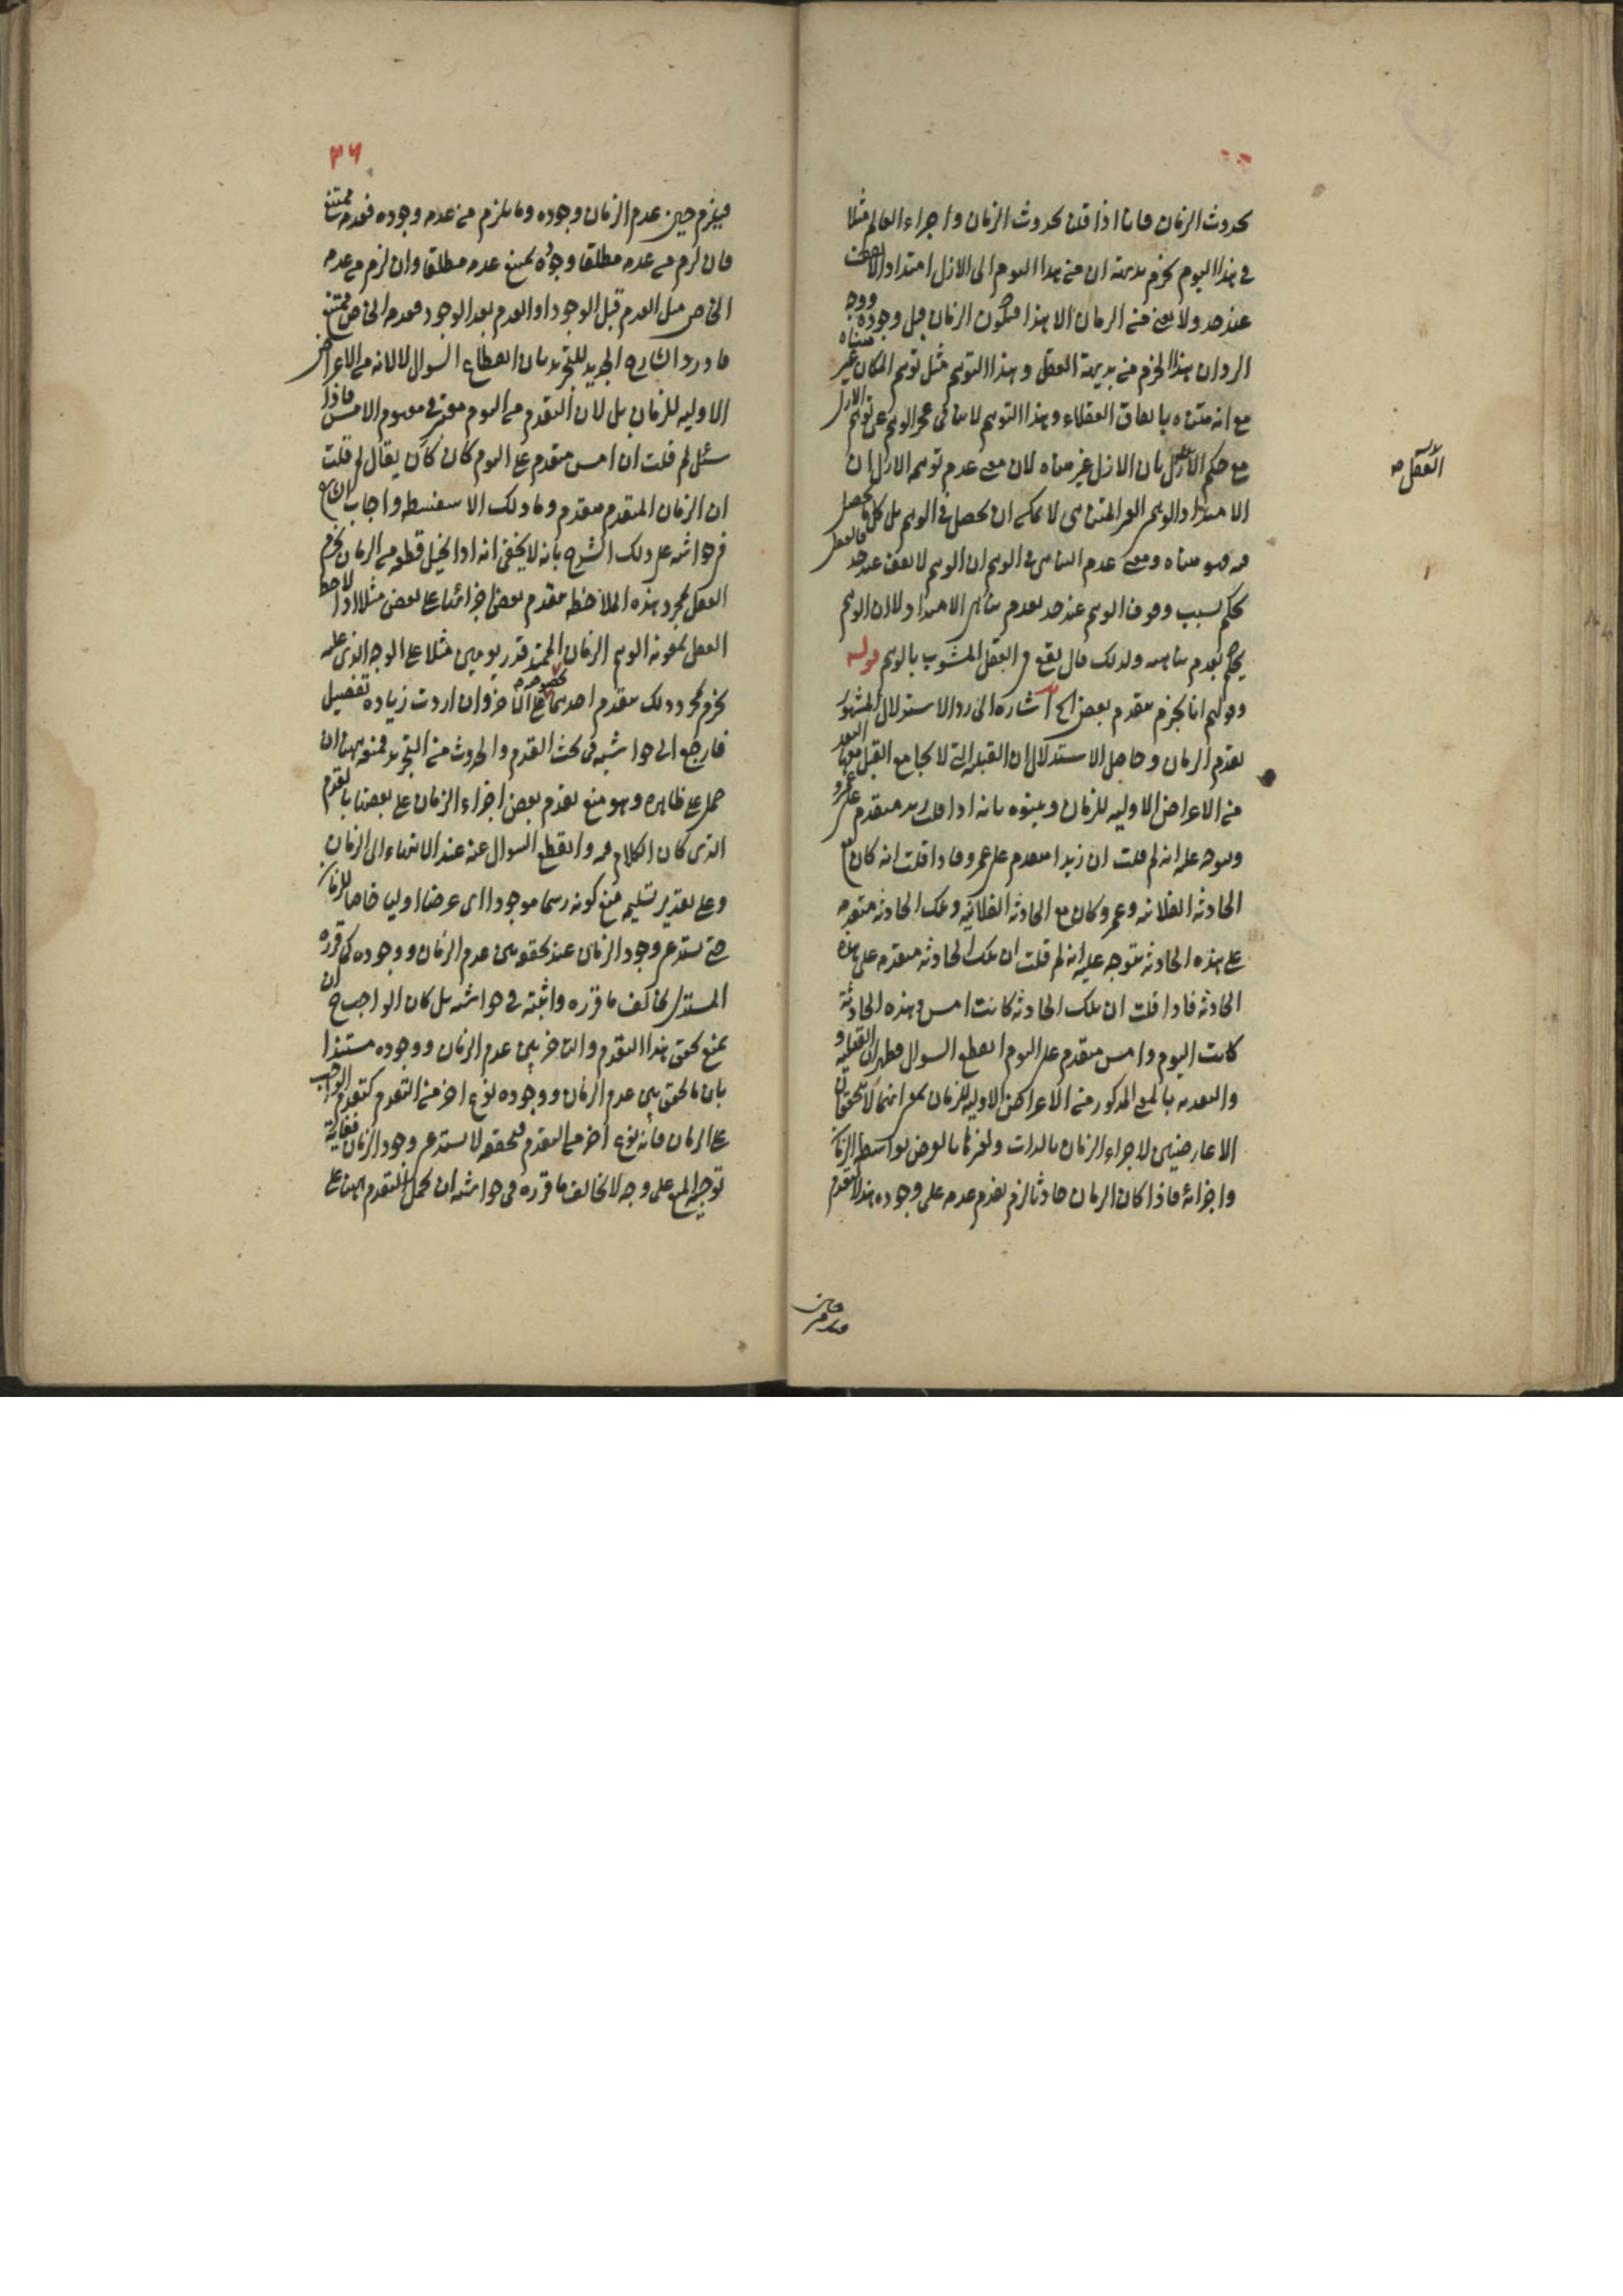 بحدوث الزمان فانا اذا قلنا بحدوث الزمان واجزاء العالم مثلا
في هذا اليوم نجزم بديهة ان من هذا اليوم الى الازل امتدادا لا يقف
عند حد ولا نعني من الزمان الا هذا فيكون الزمان قبل وجوده ووجه
الرد ان هذا الجزم من بديهة العقل وهذا التوهم مثل توهم المكان غير متناه
مع انه متناه باتفاق العقلاء وهذا التوهم لا ينافي عجز الوهم عن توهم الازل
مع حكم العقل بان الازل غير متناه لان معنى عدم توهم الازل ان
الامتداد الغير المتناهي لا يمكن ان يحصل في الوهم بل كل ما يحصل
فيه فهو متناه ومعنى عدم التناهي في الوهم ان الوهم لا يقف عند حد فالعقل
يحكم بسبب وقوف الوهم عند حد بعدم تناهي الامتداد لا ان الوهم
يحكم بعدم تناهيه ولذلك قال يقع في العقل المشوب بالوهم قوله
وقولهم انا نجزم بتقدم بعض الخ اشارة الى رد الاستدلال المشهور
بقدم الزمان وحاصل الاستدلال ان القبلية التي لا يجامع القبل معها البعد
من الاعراض الاولية للزمان وبينوه بانه اذا قلت زيد متقدم على عمرو
يتوجه عليه انه لم قلت ان زيدا متقدم على عمرو فاذا قلت انه كان مع
الحادثة الفلانية وعمرو كان مع الحادثة الفلانية وتلك الحادثة متقدمة
على هذه الحادثة يتوجه عليه انه لم قلت ان تلك الحادثة متقدمة على هذه
الحادثة فاذا قلت ان تلك الحادثة كانت امس وهذه الحادثة
كانت اليوم وامس متقدم على اليوم انقطع السوال فظهر ان القبلية و
البعدية بالمعنى المذكور من الاعراض الاولية للزمان بمعنى انهما لا تتحققان
الا عارضتين لاجزاء الزمان بالذات ولغيرها بالعرض بواسطة الزمان
واجزائه فاذا كان الزمان حادثا لزم تقدم عدمه على وجوده هذا التقدم
العقل صح
٣٦
فيلزم حين عدم الزمان وجوده وما يلزم من عدمه وجوده فعدمه ممتنع
فان لزم من عدمه مطلقا وجوده يمتنع عدمه مطلقا وان لزم من عدمه
الخاص مثل العدم قبل الوجود او العدم بعد الوجود فعدمه الخاص ممتنع
فاورد الشارح الجديد للتجريد بان انقطاع السوال لا لانه من الاعراض
الاولية للزمان بل لان التقدم من اليوم معتبر في مفهوم الامس فاذا
سئل لم قلت ان امس متقدم على اليوم كان كان يقال لم قلت
ان الزمان المتقدم متقدم وما ذلك الا سفسطة واجاب الشارح
في حواشيه على ذلك الشرح بانه لا يخفى انه اذا تخيل قطعة من الزمان يجزم
العقل بمجرد هذه الملاحظة بتقدم بعض اجزائها على بعض مثلا اذا لاحظ
العقل بمعونة الوهم الزمان الممتد قدر يومين مثلا على الوجه الذي عليه
يجزم بمجرد ذلك بتقدم احدهما بخصوصه على الآخر وان اردت زيادة تفصيل
فارجع الى حواشيه في بحث القدم والحدوث من التجريد فمنعه ههنا ان
حمل على ظاهره وهو منع تقدم بعض اجزاء الزمان على بعضها بالتقدم
الذي كان الكلام فيه وانقطع السوال عنه عند الانتهاء الى الزمان
وعلى تقدير تسليمه منع كونه رسما موجودا اي عرضا اوليا خاصا للزمان
حتى يستدعي وجود الزمان عند تحققه بين عدم الزمان ووجوده كما قرره
المستدل يخالف ما قرره واثبته في حواشيه بل كان الواجب ح ان
يمنع تحقق هذا التقدم والتاخر بين عدم الزمان ووجوده مستندا
بان ما تحقق بين عدم الزمان ووجوده نوع اخر من التقدم كتقدم الواجب
على الزمان فانه نوع اخر من التقدم فتحققه لا يستدعي وجود الزمان فغاية
توجيه المنع على وجه لا يخالف ما قرره في حواشيه ان يحمل التقدم ههنا على